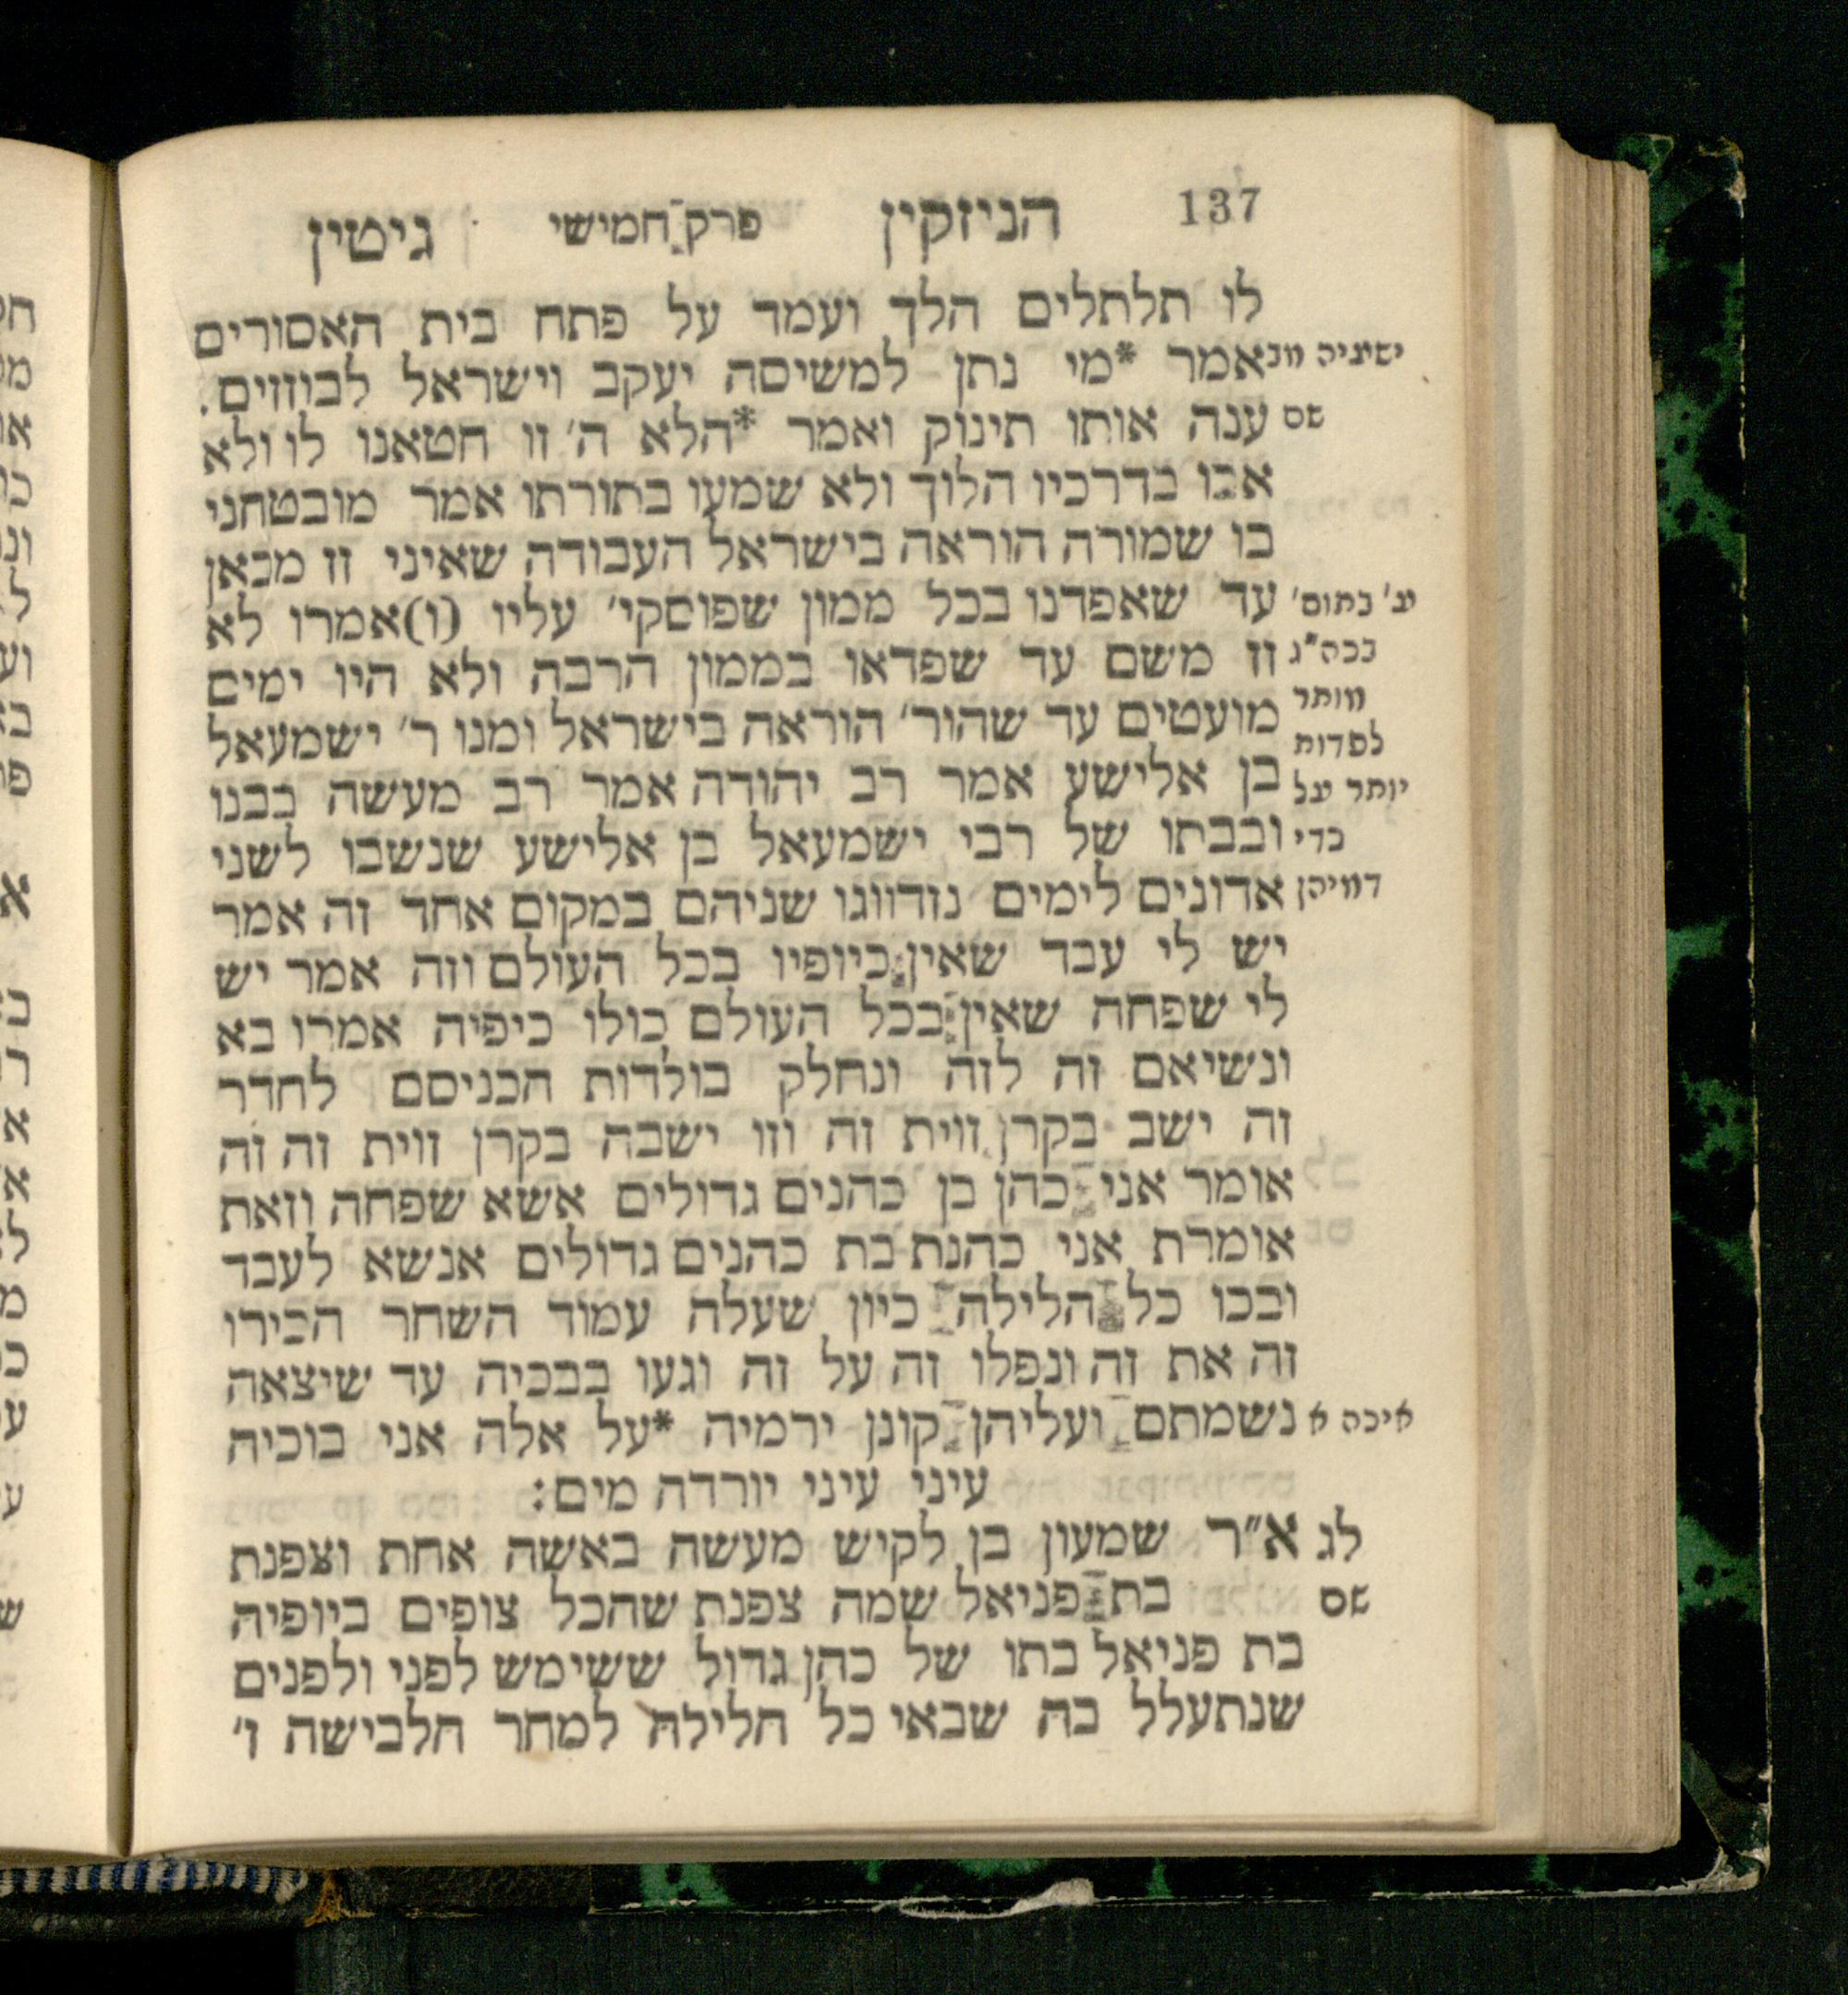 137 הניזקין פרק חמישי גיטין
לו תלתלים הלך ועמד על פתח בית האסורים
ישעיה מב אמר *מי נתן למשיסה יעקב וישראל לבוזזים.
שם ענה אותו תינוק ואמר *הלא ה׳ זו חטאנו לו ולא
אבו בדרכיו הלוך ולא שמעו בתורתו אמר מובטחני
בו שמורה הוראה בישראל העבודה שאיני זז מכאן
עי׳ בתוס׳ עד שאפדנו בכל ממון שפוסקי׳ עליו (ו)אמרו לא
בכה״ג זז משם עד שפדאו בממון הרבה ולא היו ימים
מותר מועטים עד שהור׳ הוראה בישראל ומנו ר׳ ישמעאל
לפדות
יותר על בן אלישע אמר רב יהודה אמר רב מעשה בבנו
כדי ובבתו של רבי ישמעאל בן אלישע שנשבו לשני
דמיהן אדונים לימים נזדווגו שניהם במקום אחד זה אמר
יש לי עבד שאין ביופיו בכל העולם וזה אמר יש
לי שפחה שאין בכל העולם כולו כיפיה אמרו בא
ונשיאם זה לזה ונחלק בולדות הכניסם לחדר
זה ישב בקרן זוית זה וזו ישבה בקרן זוית זה זה
אומר אני כהן בן כהנים גדולים אשא שפחה וזאת
אומרת אני כהנת בת כהנים גדולים אנשא לעבד
ובכו כל הלילה כיון שעלה עמוד השחר הכירו
זה את זה ונפלו זה על זה וגעו בבכיה עד שיצאה
איכה א נשמתם ועליהן קונן ירמיה *על אלה אני בוכיה
עיני עיני יורדה מים:
לג א״ר שמעון בן לקיש מעשה באשה אחת וצפנת
שם בת פניאל שמה צפנת שהכל צופים ביופיה
בת פניאל בתו של כהן גדול ששימש לפני ולפנים
שנתעלל בה שבאי כל הלילה למחר הלבישה ז׳